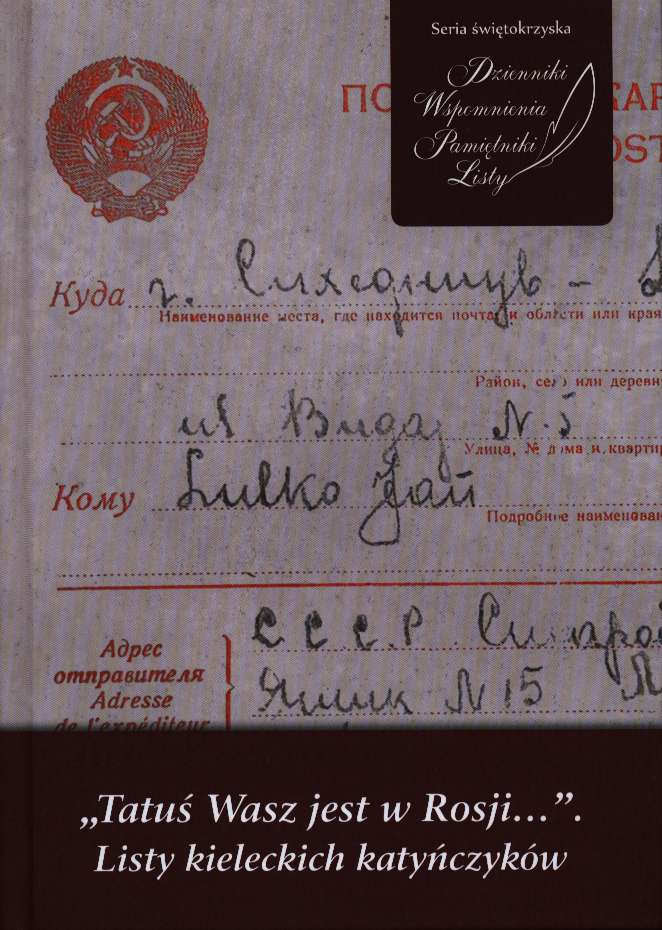 Seria świętokrzyska
Dzienniki
Wspomnienia
Pamiętniki
Listy
ПО
КАР
OST
Куда г. Сихедницув -
Наименование места, где находится почта, и области или края
Район, село или деревн
ul Bugaj N. 5
Улица, № дома и квартир
Кому Lulko Jan
Подробное наименован
С.С.С.Р
Адрес
отправителя
Ящик N 15
Adresse
de l'expéditeur
„Tatuś Wasz jest w Rosji…”.
Listy kieleckich katyńczyków